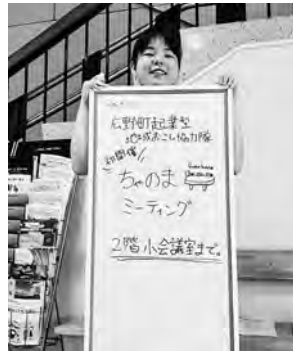 広野町起業型
地域おこし協力隊
初開催//
ちゃのま
ミーティング
2階 小会議室まで。